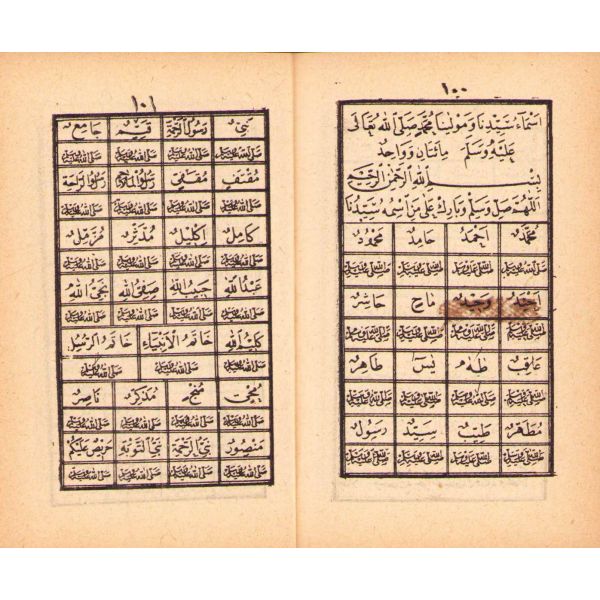 ١٠٠
اسماء سيدنا ومولينا محمد صلى الله تعالى
عليه وسلم مائتان وواحد
بسم الله الرحمن الرحيم
اللهم صل وسلم وبارك على من اسمه سيدنا
محمد احمد حامد محمود
صلى الله عليه وسلم صلى الله عليه وسلم صلى الله عليه وسلم صلى الله عليه وسلم
احيد وحيد ماح حاشر
صلى الله عليه وسلم صلى الله عليه وسلم صلى الله عليه وسلم صلى الله عليه وسلم
عاقب طه يس طاهر
صلى الله عليه وسلم صلى الله عليه وسلم صلى الله عليه وسلم صلى الله عليه وسلم
مطهر طيب سيد رسول
صلى الله عليه وسلم صلى الله عليه وسلم صلى الله عليه وسلم صلى الله عليه وسلم
١٠١
نبي رسول الرحمة قيم جامع
صلى الله عليه وسلم صلى الله عليه وسلم صلى الله عليه وسلم صلى الله عليه وسلم
مقتف مقفى رسول الملاحم رسول الراحة
صلى الله عليه وسلم صلى الله عليه وسلم صلى الله عليه وسلم صلى الله عليه وسلم
كامل اكليل مدثر مزمل
صلى الله عليه وسلم صلى الله عليه وسلم صلى الله عليه وسلم صلى الله عليه وسلم
عبد الله حبيب الله صفي الله نجي الله
صلى الله عليه وسلم صلى الله عليه وسلم صلى الله عليه وسلم صلى الله عليه وسلم
كليم الله خاتم الانبياء خاتم الرسل
صلى الله عليه وسلم صلى الله عليه وسلم صلى الله عليه وسلم
محي منج مذكر ناصر
صلى الله عليه وسلم صلى الله عليه وسلم صلى الله عليه وسلم صلى الله عليه وسلم
منصور نبي الرحمة نبي التوبة حريص عليكم
صلى الله عليه وسلم صلى الله عليه وسلم صلى الله عليه وسلم صلى الله عليه وسلم